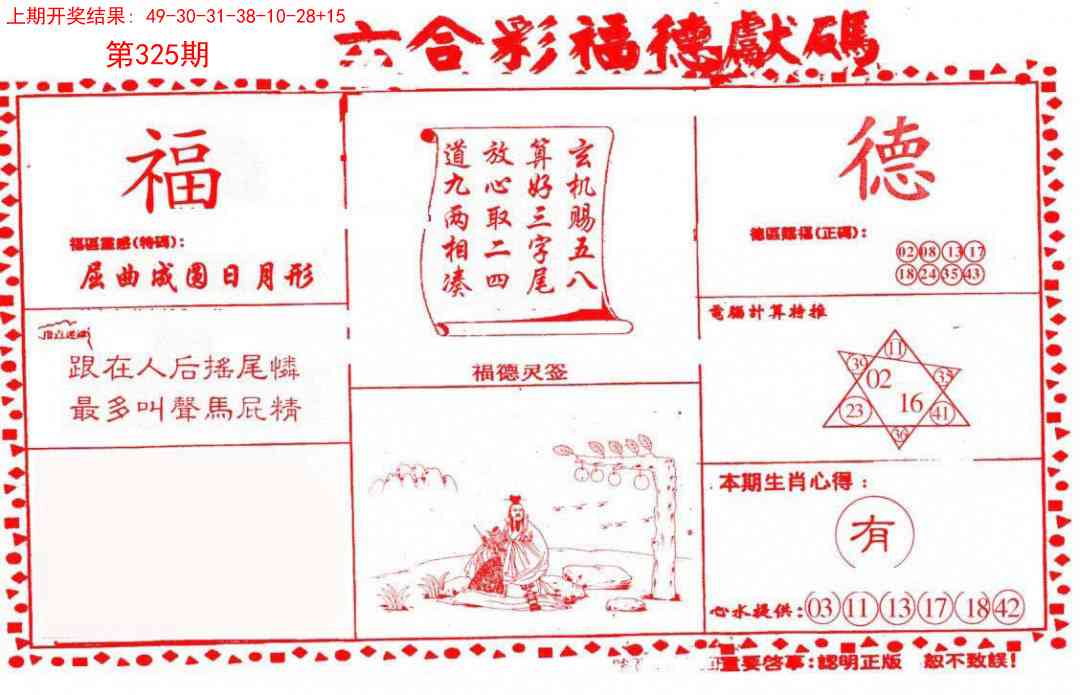 上期开奖结果：49-30-31-38-10-28+15
第325期
六合彩福德獻碼
福
福區靈感(特碼)：
屈曲成圆日月形
跟在人后摇尾憐
最多叫聲馬屁精
玄机赐五八
算好三字尾
放心取二四
道九两相凑
福德灵签
德
德區賜福(正碼)：
02 08 13 17
18 24 35 43
電腦計算特推
11
39 02 35
23 16 41
36
本期生肖心得：
有
心水提供：03 11 13 17 18 42
重要启事：認明正版 恕不致誤！